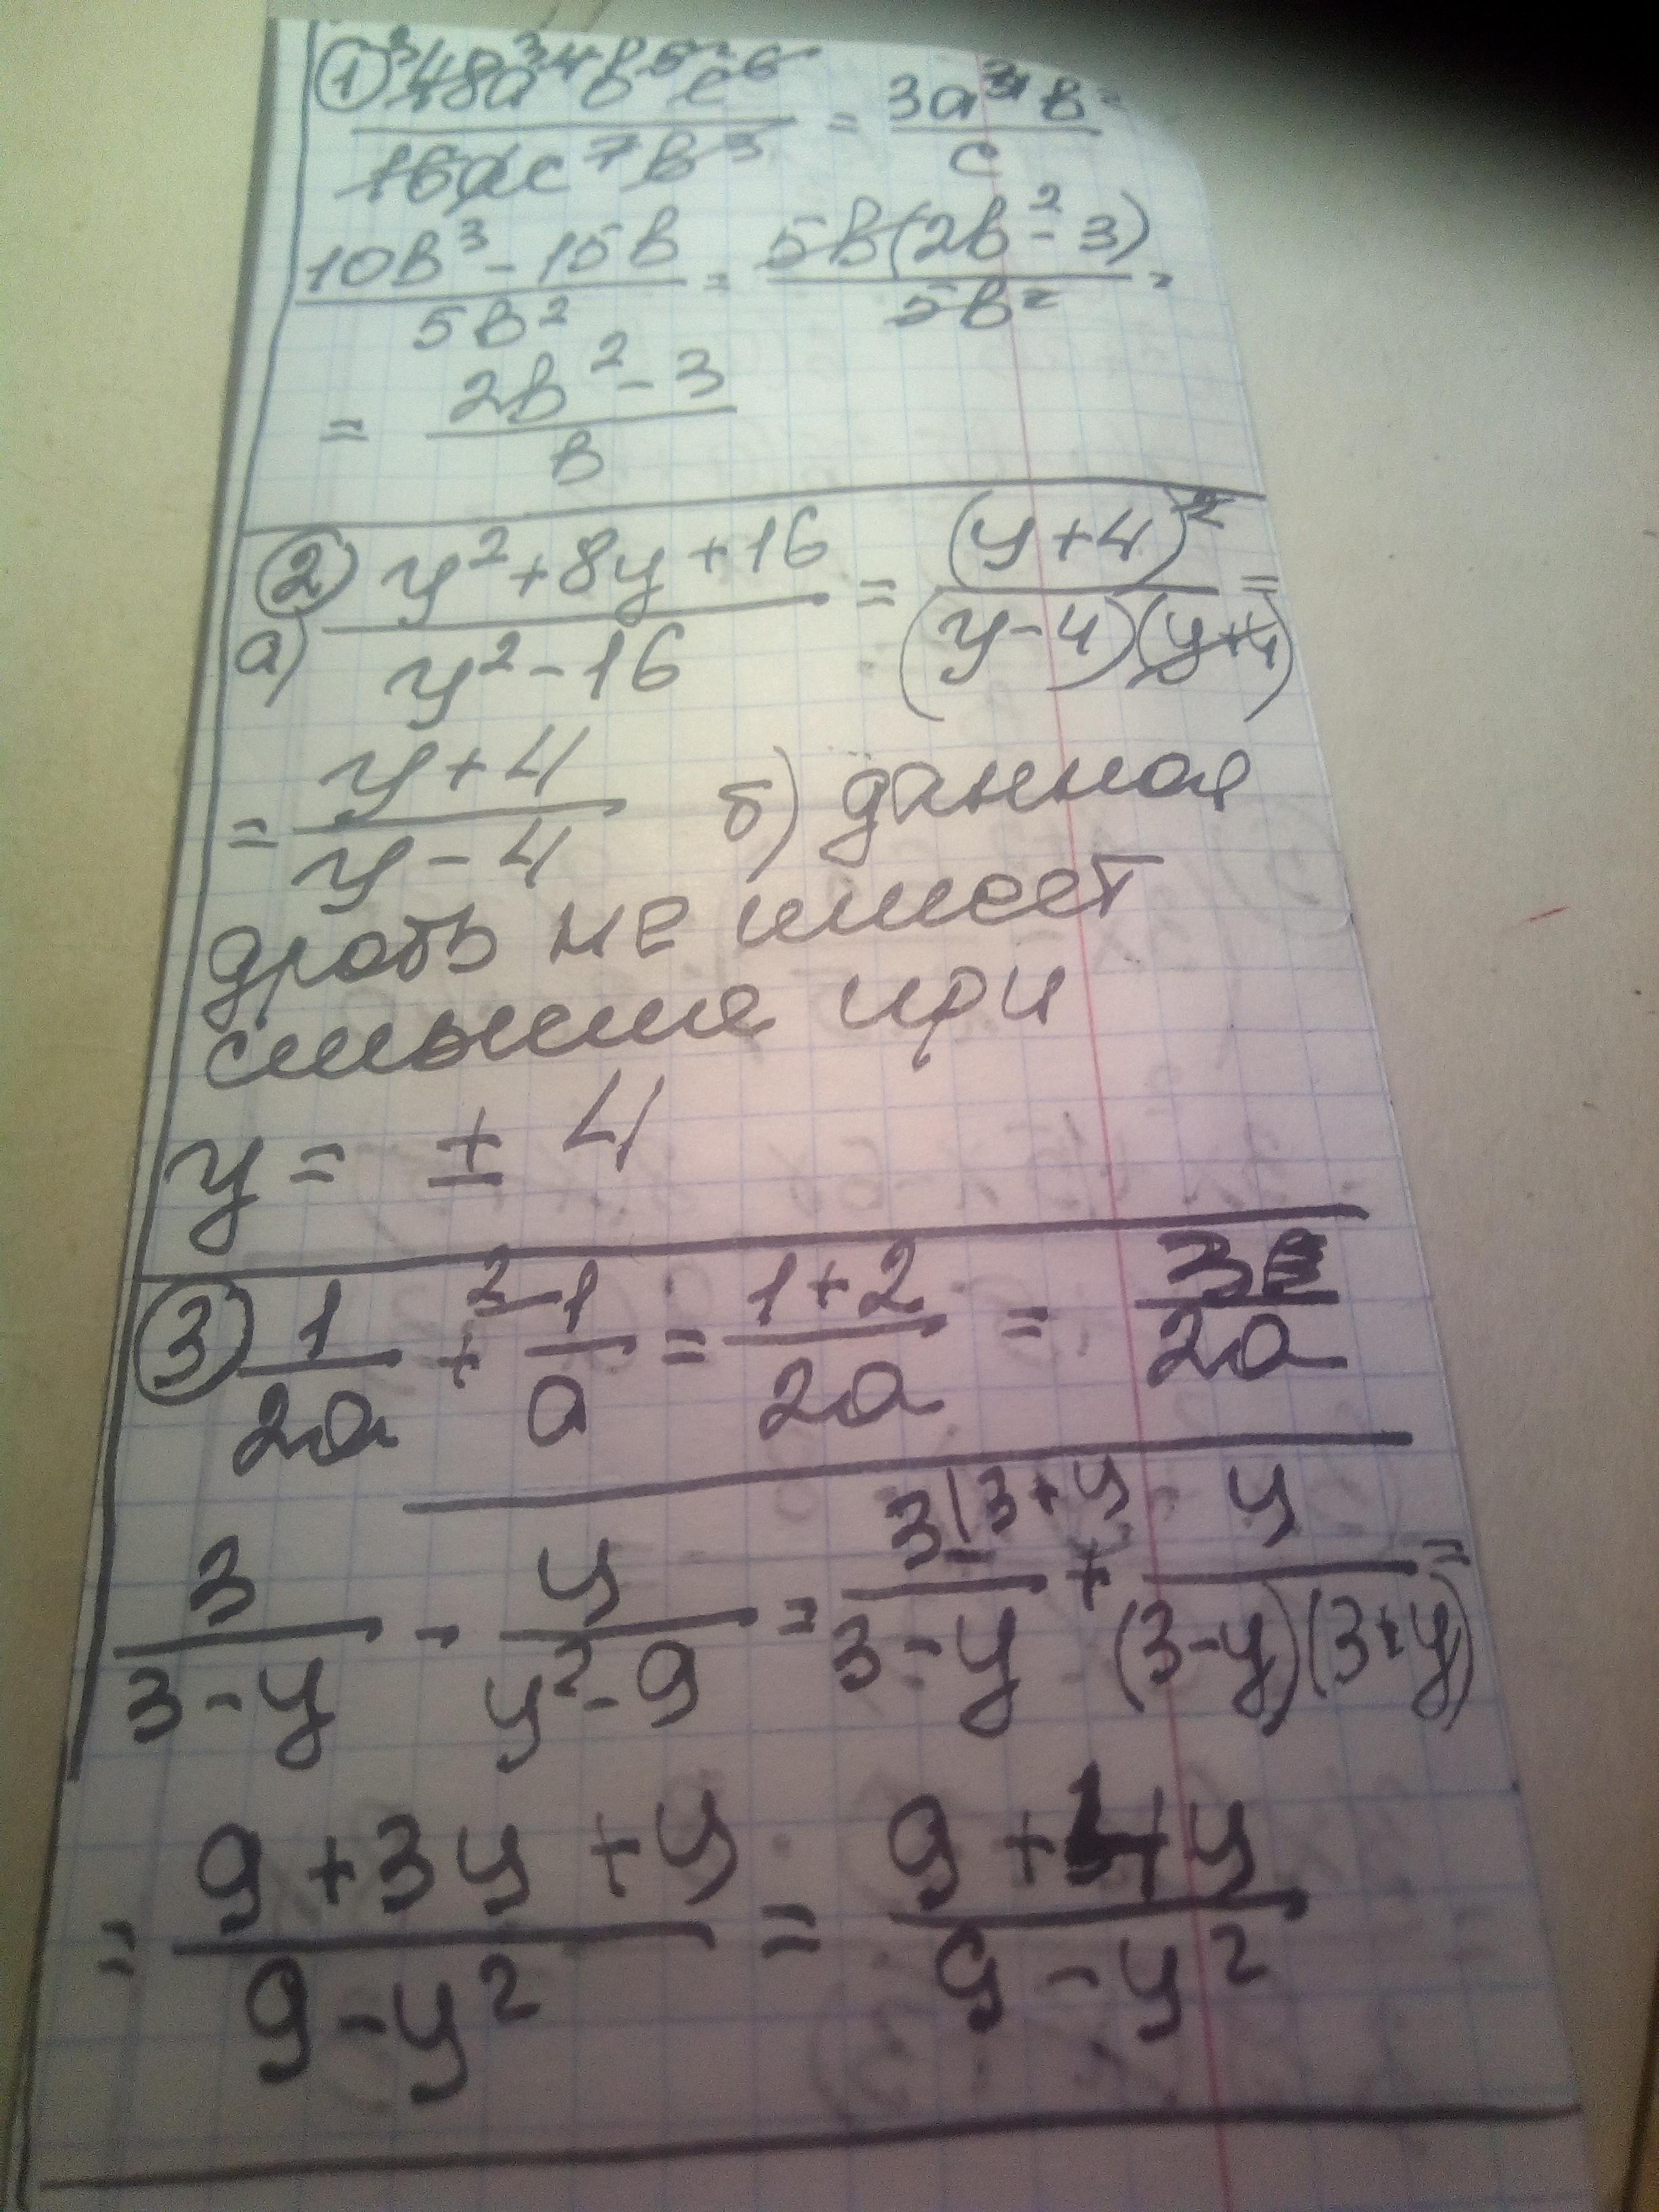 ① 48a⁴b⁵c⁶ / 16ac⁷b³ = 3a³b² / c
10b³ - 15b / 5b² = 5b(2b² - 3) / 5b² =
= 2b² - 3 / b
② а) y² + 8y + 16 / y² - 16 = (y + 4)² / (y - 4)(y + 4) =
= y + 4 / y - 4 б) данная
дробь не имеет
смысла при
y = ± 4
③ 1 / 2a + 2 1 / a = 1 + 2 / 2a = 3 / 2a
3 / 3 - y - y / y² - 9 = 3 (3 + y / 3 - y + y / (3 - y)(3 + y) =
= 9 + 3y + y / 9 - y² = 9 + 4y / 9 - y²